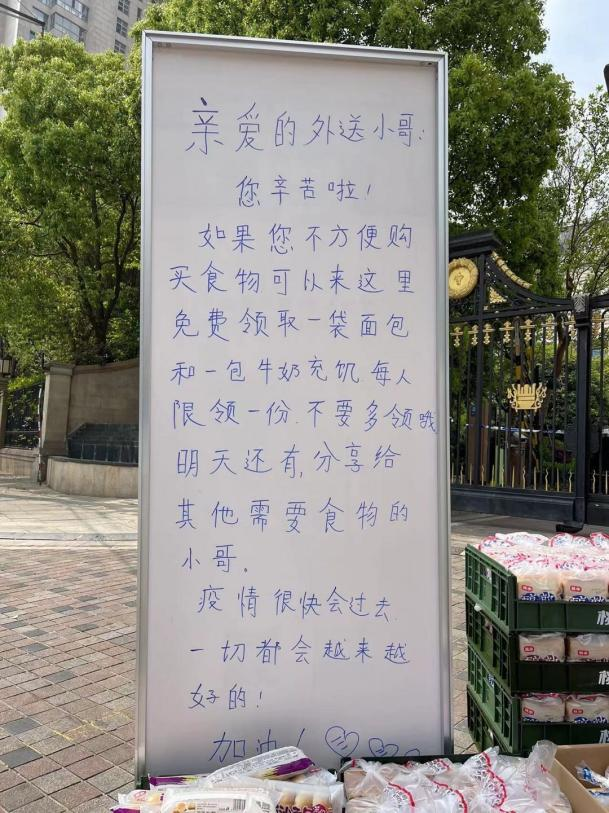 亲爱的外送小哥：
您辛苦啦！
如果您不方便购
买食物可以来这里
免费领取一袋面包
和一包牛奶充饥每人
限领一份.不要多领哦
明天还有,分享给
其他需要食物的
小哥。
疫情很快会过去.
一切都会越来越
好的！
加油！